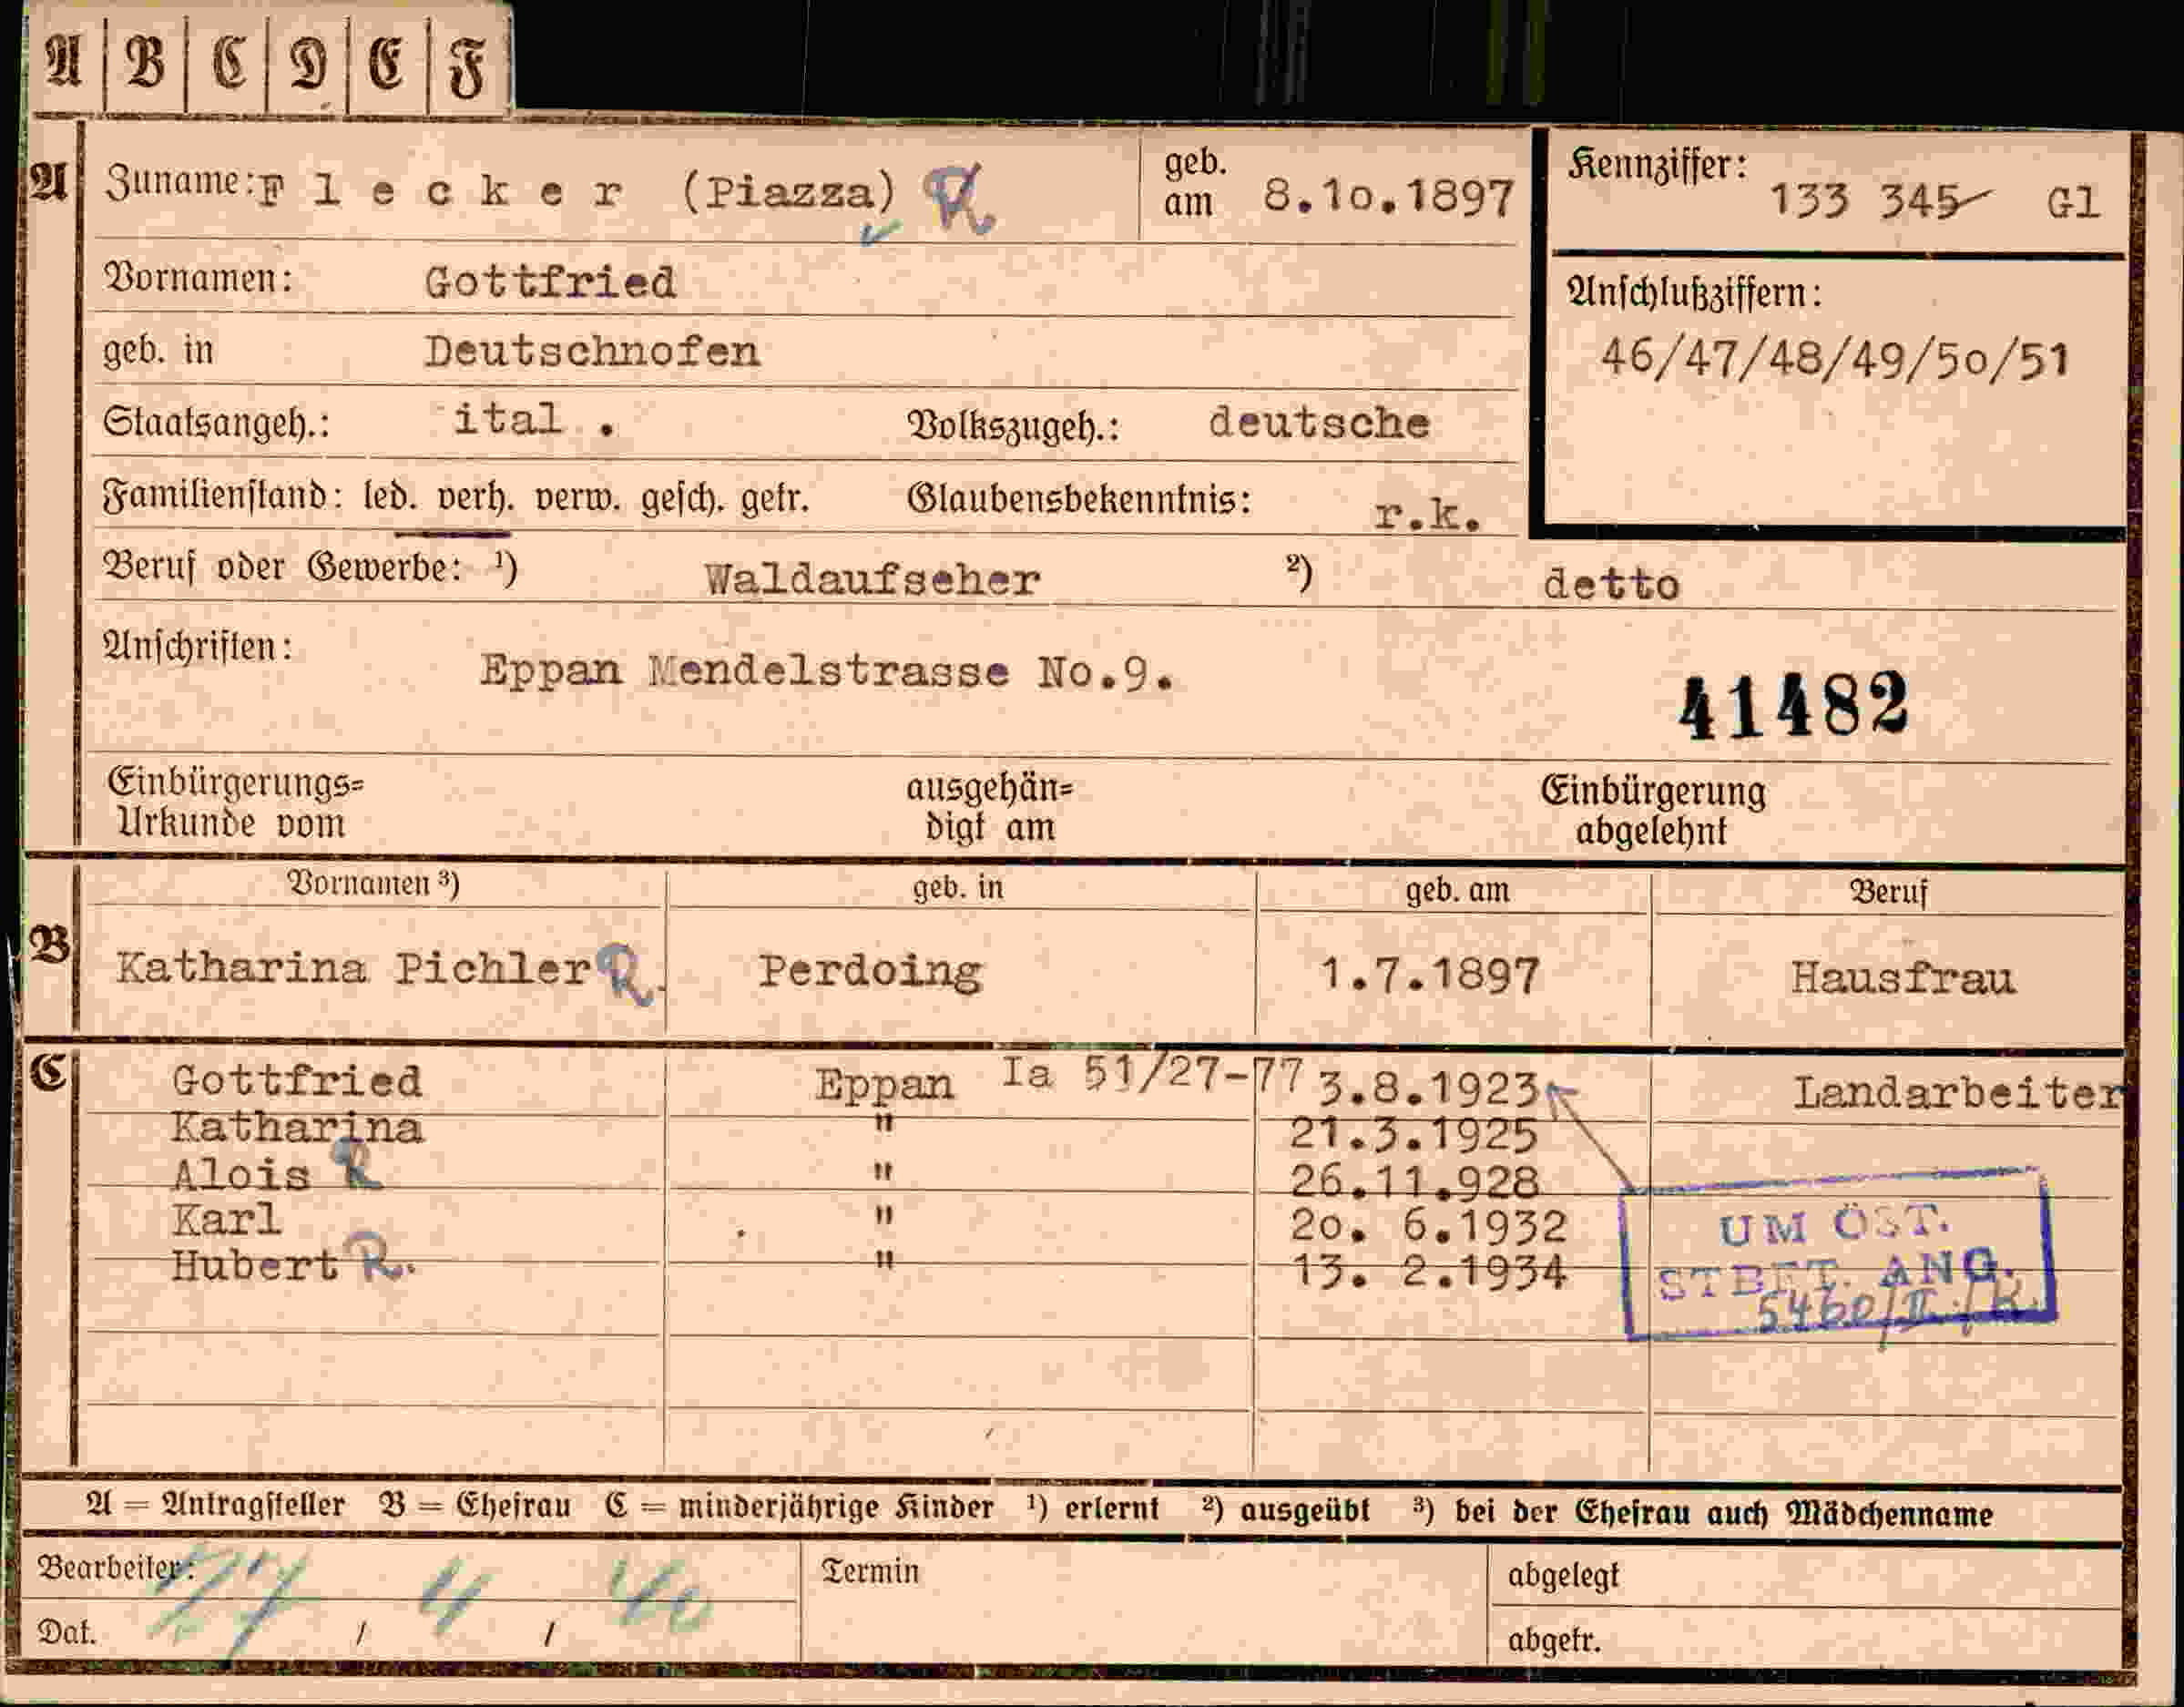 A B C D E F
A Zuname: Flecker (Piazza) R geb. am 8.10.1897 Kennziffer: 133 345 Gl
Vornamen: Gottfried Anschlußziffern:
geb. in Deutschnofen 46/47/48/49/50/51
Staatsangeh.: ital. Volkszugeh.: deutsche
Familienstand: led. verh. verw. gesch. getr. Glaubensbekenntnis: r.k.
Beruf oder Gewerbe: ¹) Waldaufseher ²) detto
Anschriften: Eppan Mendelstrasse No.9.
41482
Einbürgerungs= ausgehän= Einbürgerung
Urkunde vom digt am abgelehnt
Vornamen ³) geb. in geb. am Beruf
B Katharina Pichler R. Perdoing 1.7.1897 Hausfrau
C Gottfried Eppan Ia 51/27-77 3.8.1923 Landarbeiter
Katharina " 21.3.1925
Alois R " 26.11.928
Karl " 20. 6.1932
Hubert R. " 13. 2.1934
UM ÖST.
STBFT. ANG.
5460/II./R.
A = Antragsteller B = Ehefrau C = minderjährige Kinder ¹) erlernt ²) ausgeübt ³) bei der Ehefrau auch Mädchenname
Bearbeiter: Termin abgelegt
Dat. 27 / 4 / 40 abgetr.